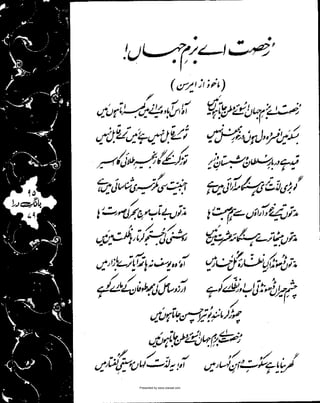 رخصت اے بزمِ جہاں!
(ماخوذ از ایمرسن)
رخصت اے بزمِ جہاں! سوئے وطن جاتا ہوں میں آہ! اس آباد ویرانے میں گھبراتا ہوں میں
بسکہ میں افسردہ دل ہوں، درخورِ محفل نہیں تو مرے قابل نہیں ہے، میں ترے قابل نہیں
قید ہے دربارِ سلطان و شبستانِ وزیر توڑ کر نکلے گا زنجیرِ طلائی کا اسیر
گو بڑی لذت تری ہنگامہ آرائی میں ہے اجنبیت سی مگر تیری شناسائی میں ہے
مدتوں تیرے خود آراؤں سے ہم صحبت رہا مدتوں بے تاب موجِ بحر کی صورت رہا
مدتوں بیٹھا ترے ہنگامۂ عشرت میں میں روشنی کی جستجو کرتا رہا ظلمت میں میں
مدتوں ڈھونڈا کیا نظارۂ گل، خار میں آہ، وہ یوسف نہ ہاتھ آیا ترے بازار میں
چشمِ حیراں ڈھونڈتی اب اور نظارے کو ہے آرزو ساحل کی مجھ طوفاں کے مارے کو ہے
چھوڑ کر مانندِ بو تیرا چمن جاتا ہوں میں
رخصت اے بزمِ جہاں! سوئے وطن جاتا ہوں میں
گھر بنایا ہے سکوتِ دامنِ کہسار میں آہ! یہ لذت کہاں موسیقیِ گفتار میں
بانگِ درا
Presented by www.ziaraat.com